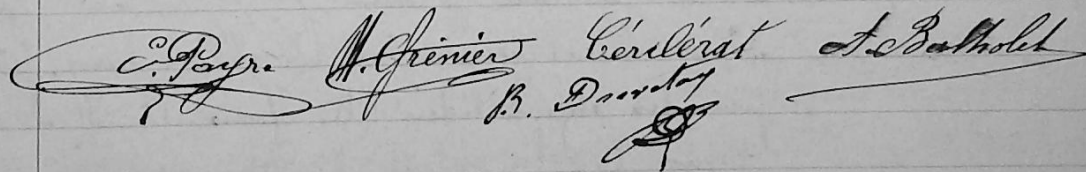 C. Payre M. Grenier Cérilérat A. Bertholet
B.